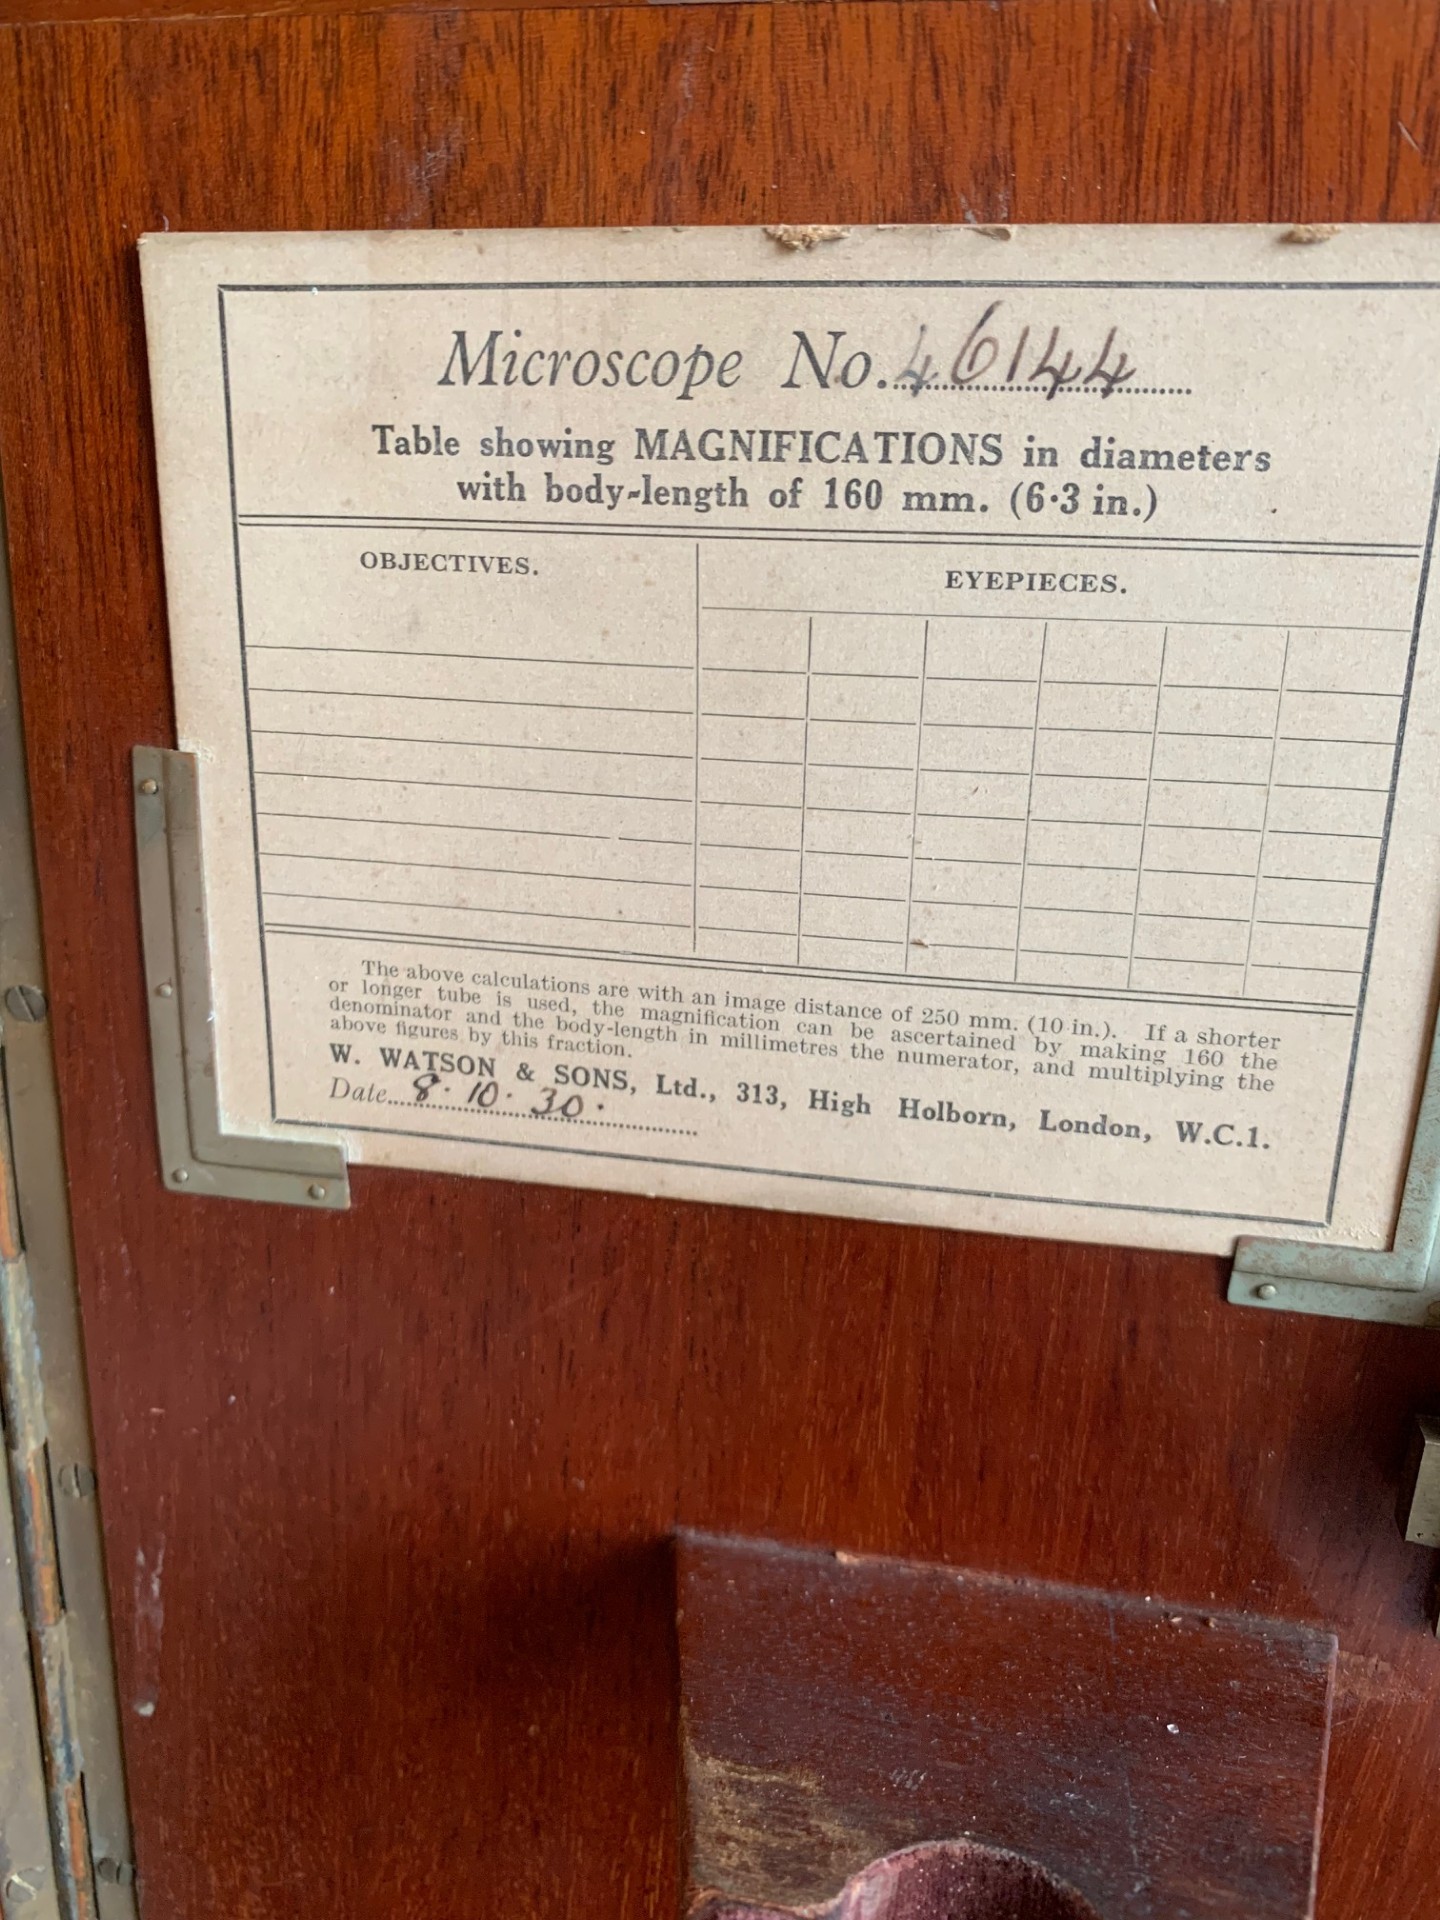 Microscope No. 46144
Table showing MAGNIFICATIONS in diameters
with body-length of 160 mm. (6·3 in.)
OBJECTIVES.
EYEPIECES.
The above calculations are with an image distance of 250 mm. (10 in.). If a shorter
or longer tube is used, the magnification can be ascertained by making 160 the
denominator and the body-length in millimetres the numerator, and multiplying the
above figures by this fraction.
W. WATSON & SONS, Ltd., 313, High Holborn, London, W.C.1.
Date 8·10·30·